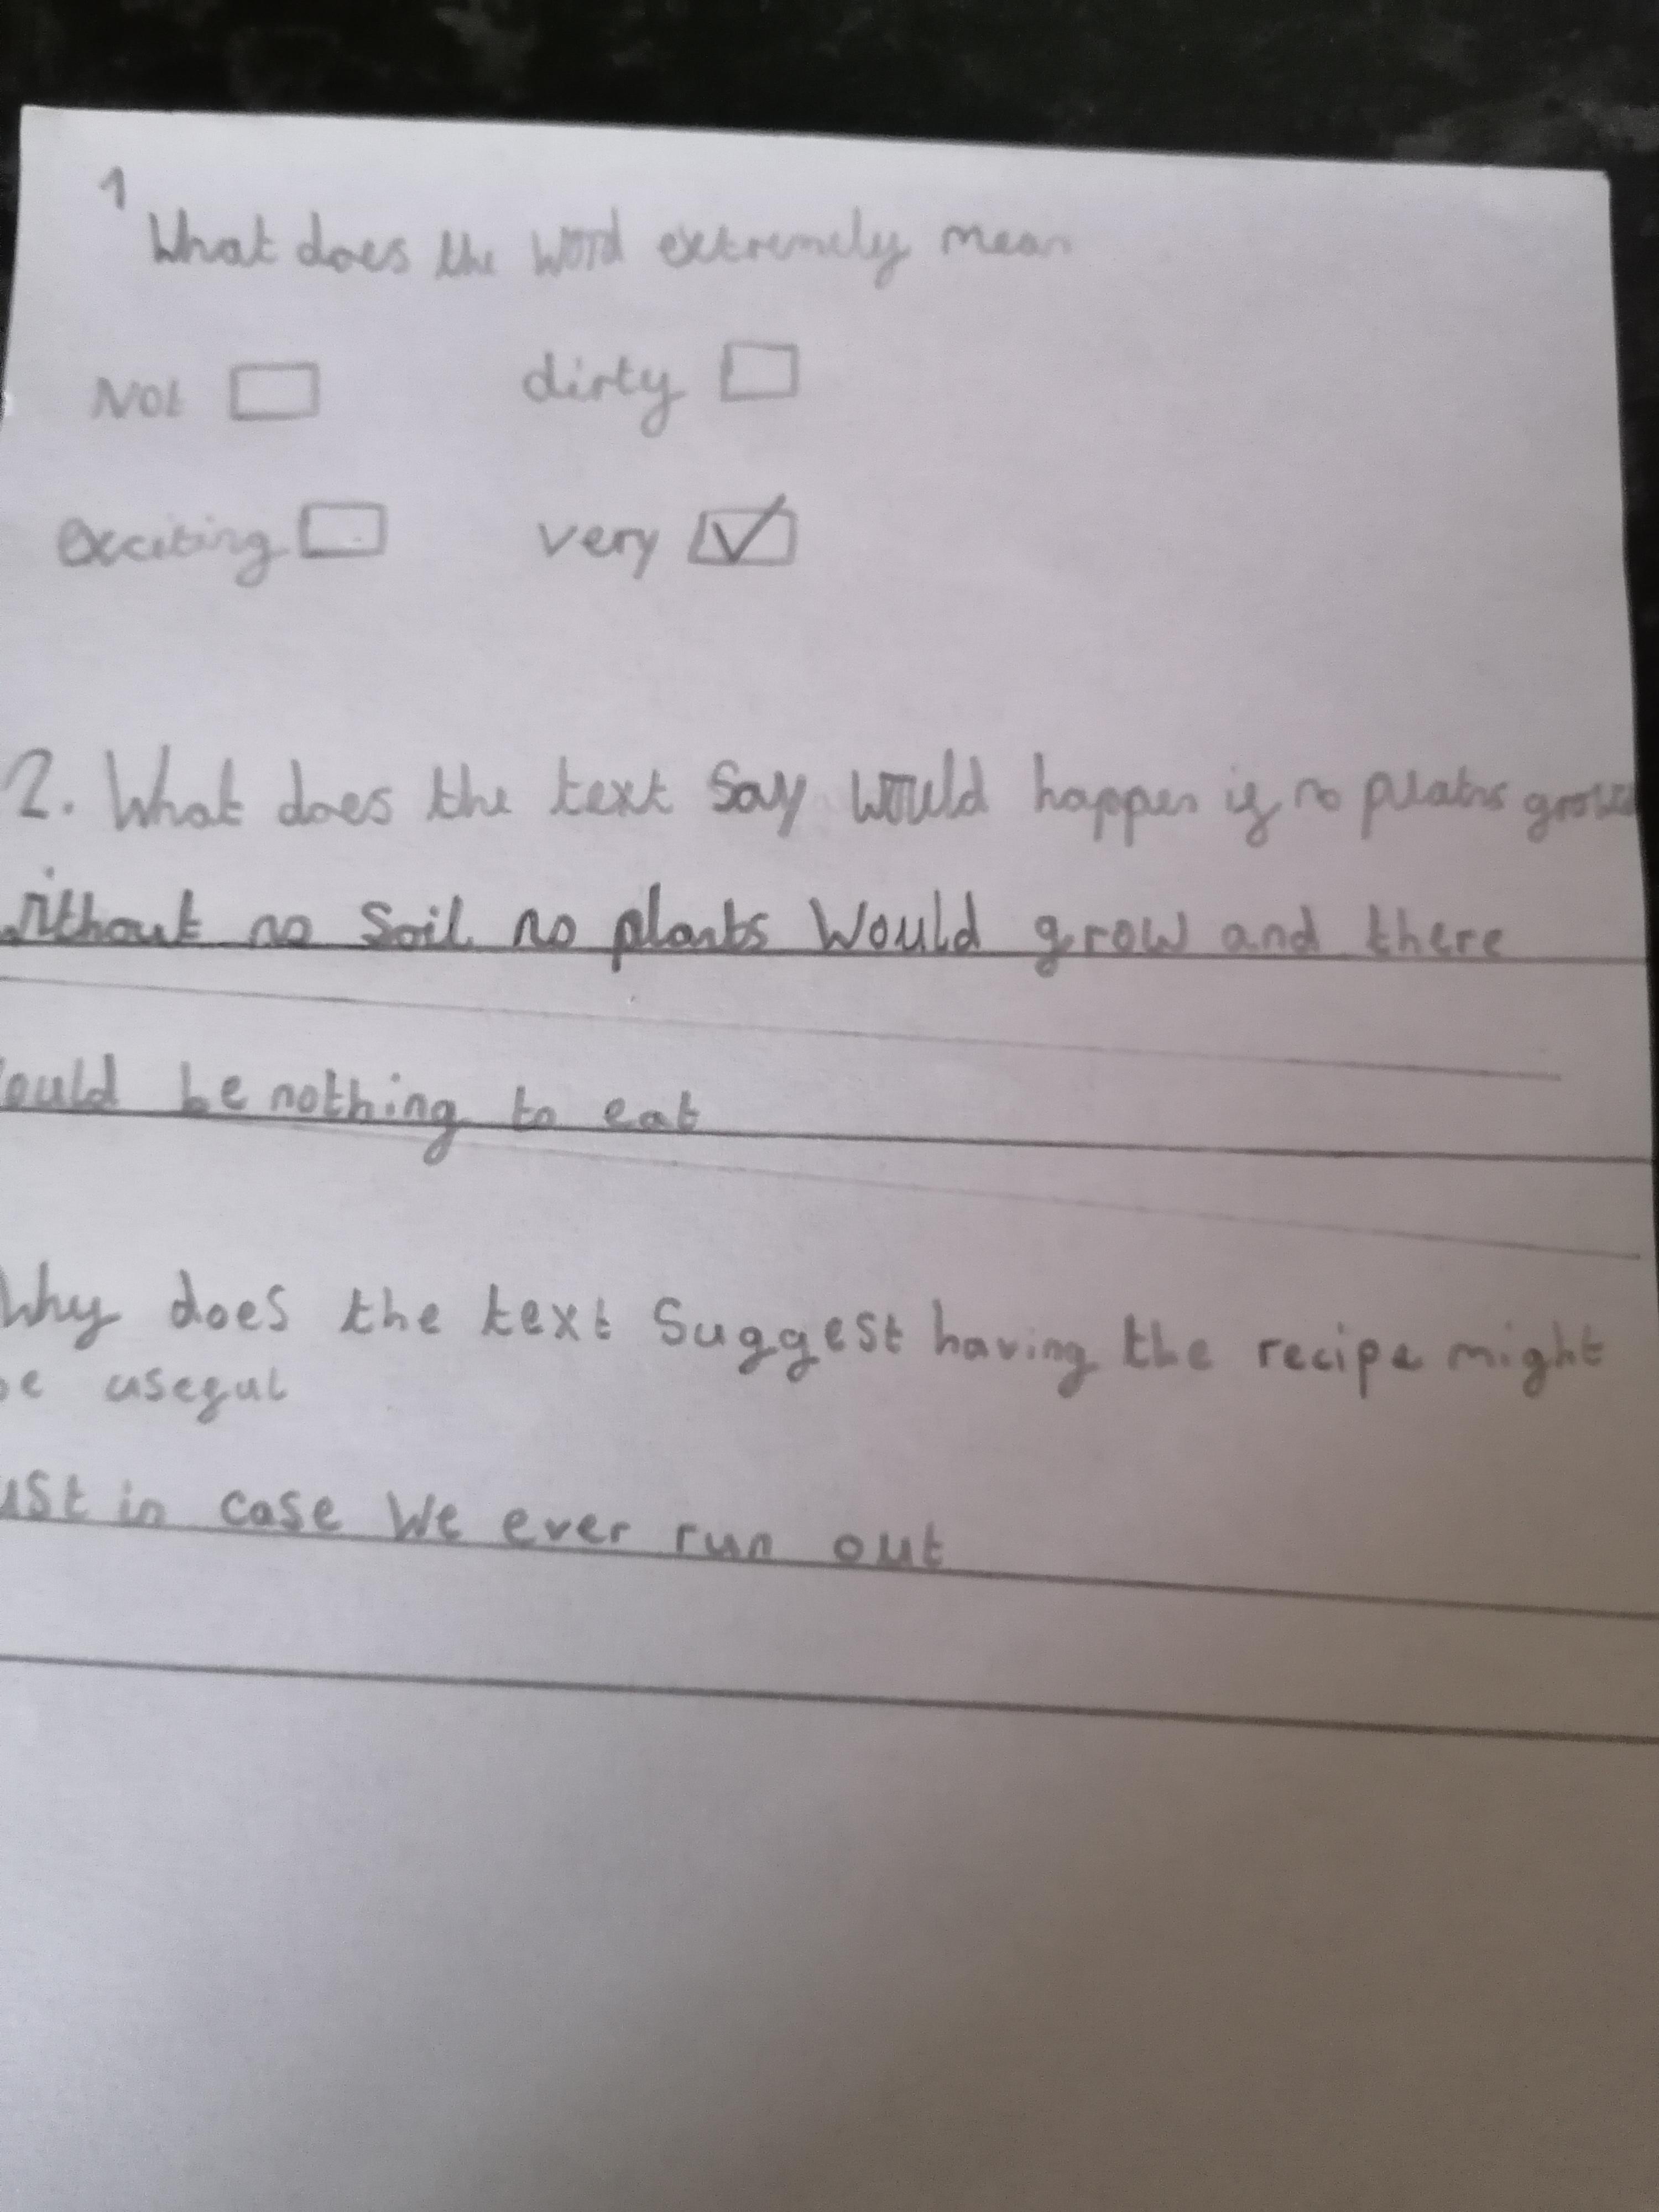 1
What does the word extremely mean
Not dirty
exciting very
2. What does the text say would happen if no plants
without no soil no plants would grow and there
ould be nothing to eat
Why does the text Suggest having the recipe might
be useful
ust in case We ever run out